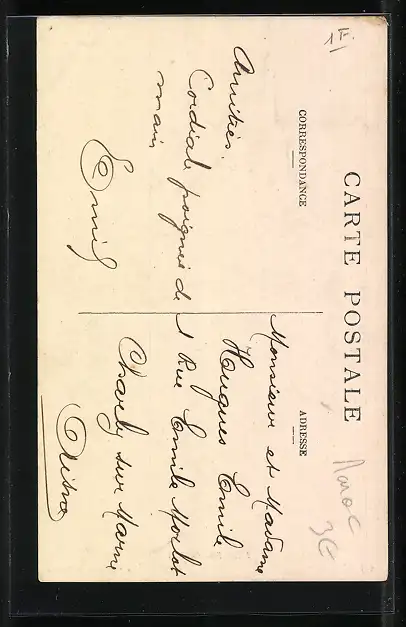 CARTE POSTALE
CORRESPONDANCE
Amitiés.
Cordiale poignée de
main
Emil
ADRESSE
Monsieur et Madame
Hugues Emile
1 Rue Emile Morlot
Charly sur Marne
Aisne
Maroc
30